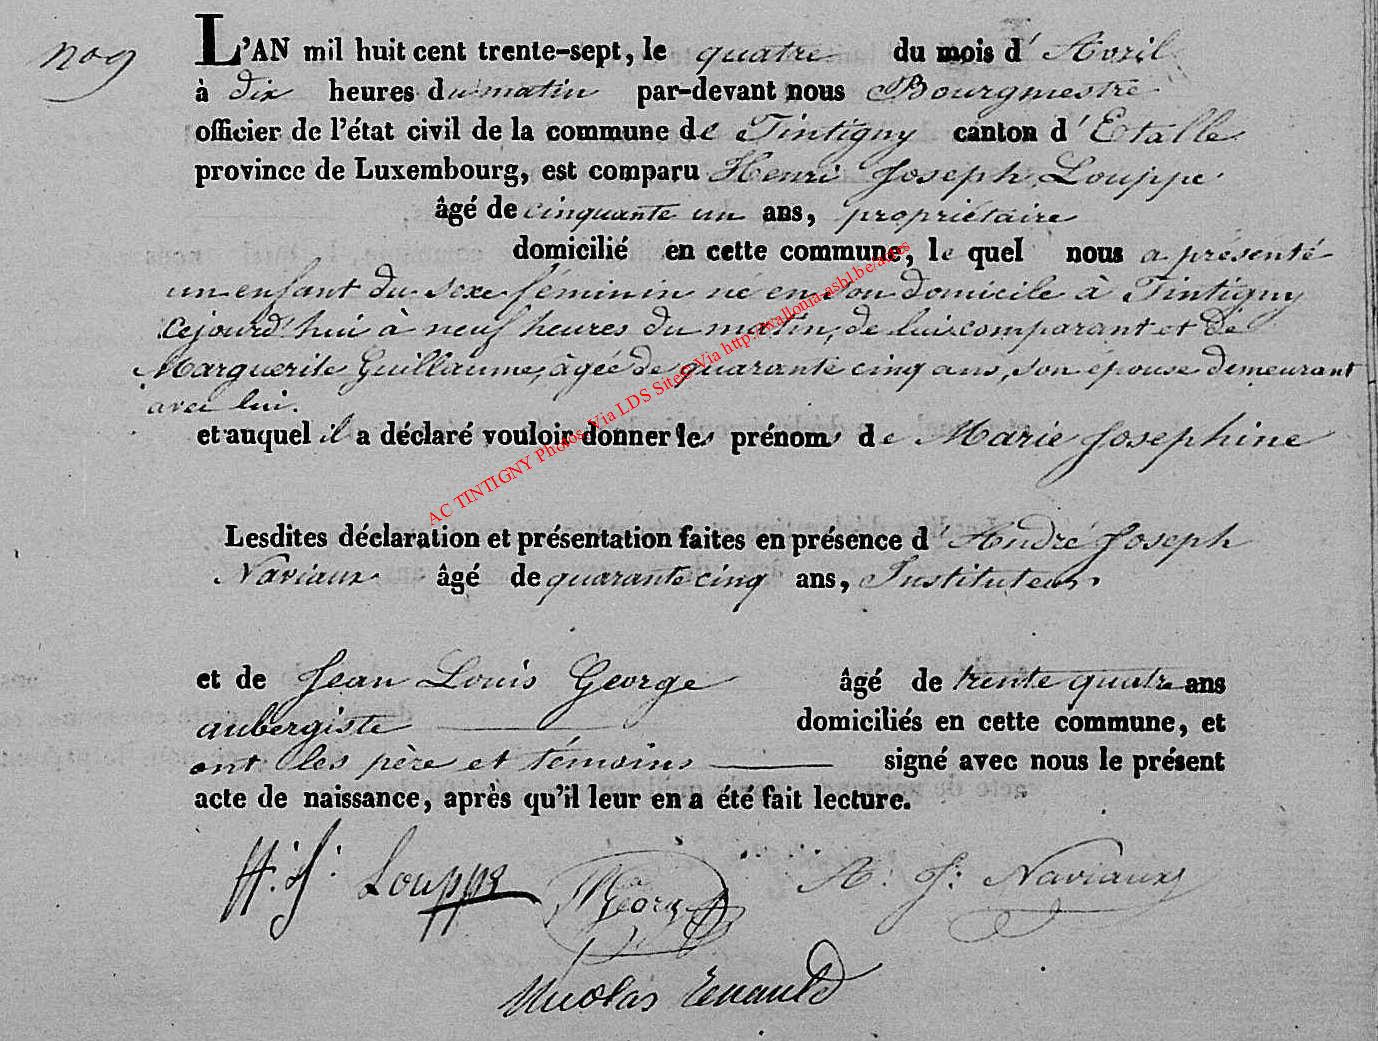 no 9
L'AN mil huit cent trente-sept, le quatre du mois d' Avril
à dix heures du matin par-devant nous Bourgmestre
officier de l'état civil de la commune de Tintigny canton d' Etalle
province de Luxembourg, est comparu Henri Joseph Louppe
âgé de cinquante un ans, propriétaire
domicilié en cette commune, le quel nous a présenté
un enfant du sexe féminin né en son domicile à Tintigny
cejourd'hui à neuf heures du matin, de lui comparant et de
Marguerite Guillaume, âgée de quarante cinq ans, son épouse demeurant
avec lui.
et auquel il a déclaré vouloir donner les prénoms de Marie Josephine
Lesdites déclaration et présentation faites en présence d' André Joseph
Naviaux âgé de quarante cinq ans, Instituteur
et de Jean Louis George âgé de trente quatre ans
aubergiste domiciliés en cette commune, et
ont les père et témoins signé avec nous le présent
acte de naissance, après qu'il leur en a été fait lecture.
H. J. Louppe Georg A. J. Naviaux
Nicolas
AC TINTIGNY Photos Via LDS Sites Via http://wallonia-asbl.be/actes